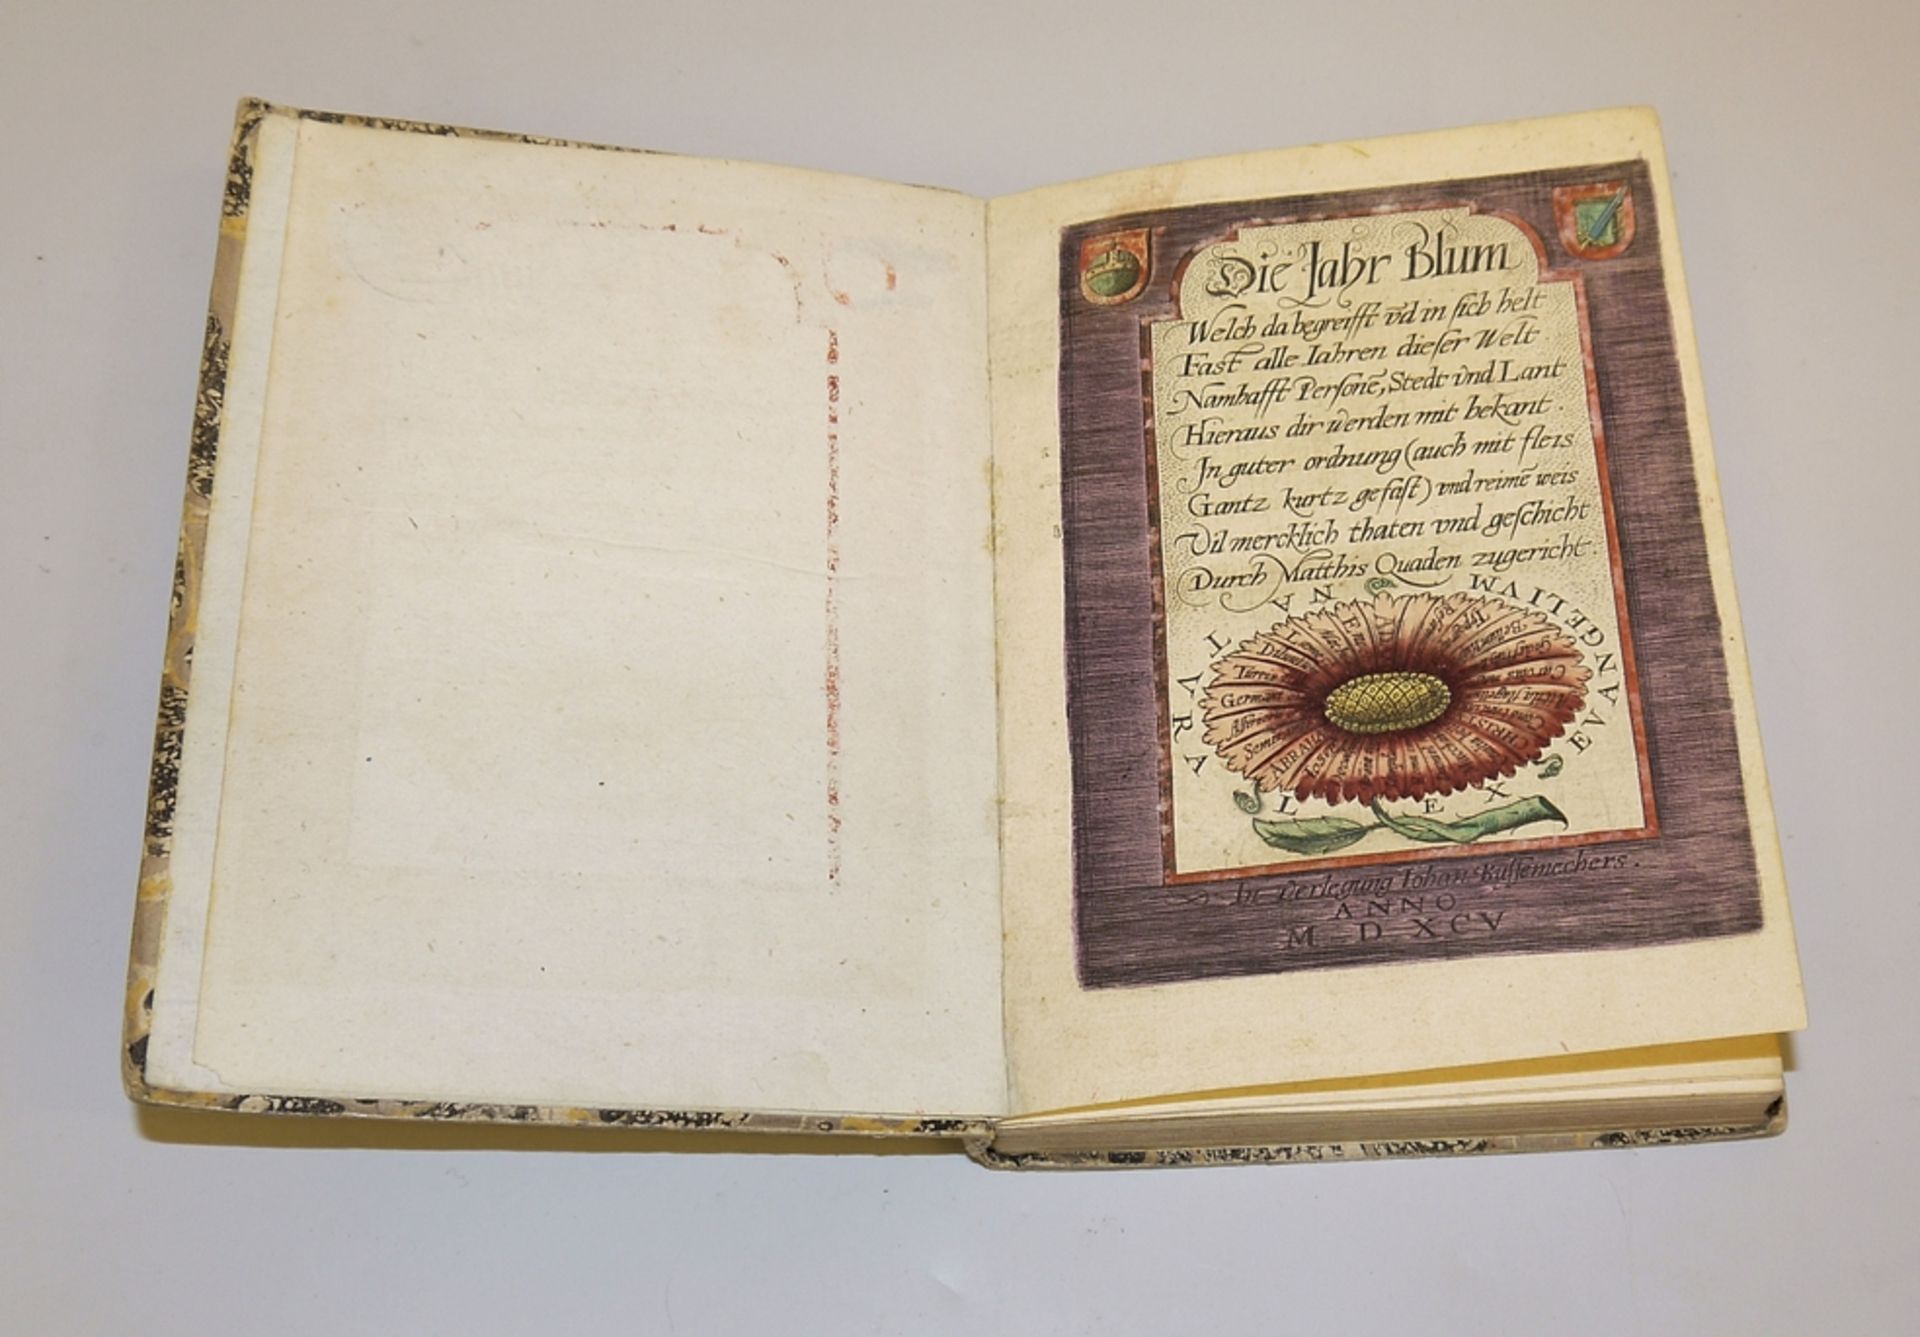 Die Jahr Blum
Welch da begreifft v̄d in sich helt
Fast alle Iahren dieser Welt.
Namhafft Personē, Stedt vnd Lant
Hieraus dir werden mit bekant.
Jn guter ordnung (auch mit fleis
Gantz kurtz gefast) vnd reimē weis
Vil mercklich thaten vnd geschicht
Durch Matthis Quaden zugericht.
NATVRA
LEX
EVANGELIVM
Turris
German
Semir
ABRAHA
CHRIST
In verlegung Iohan Kussemechers.
ANNO
M D XCV